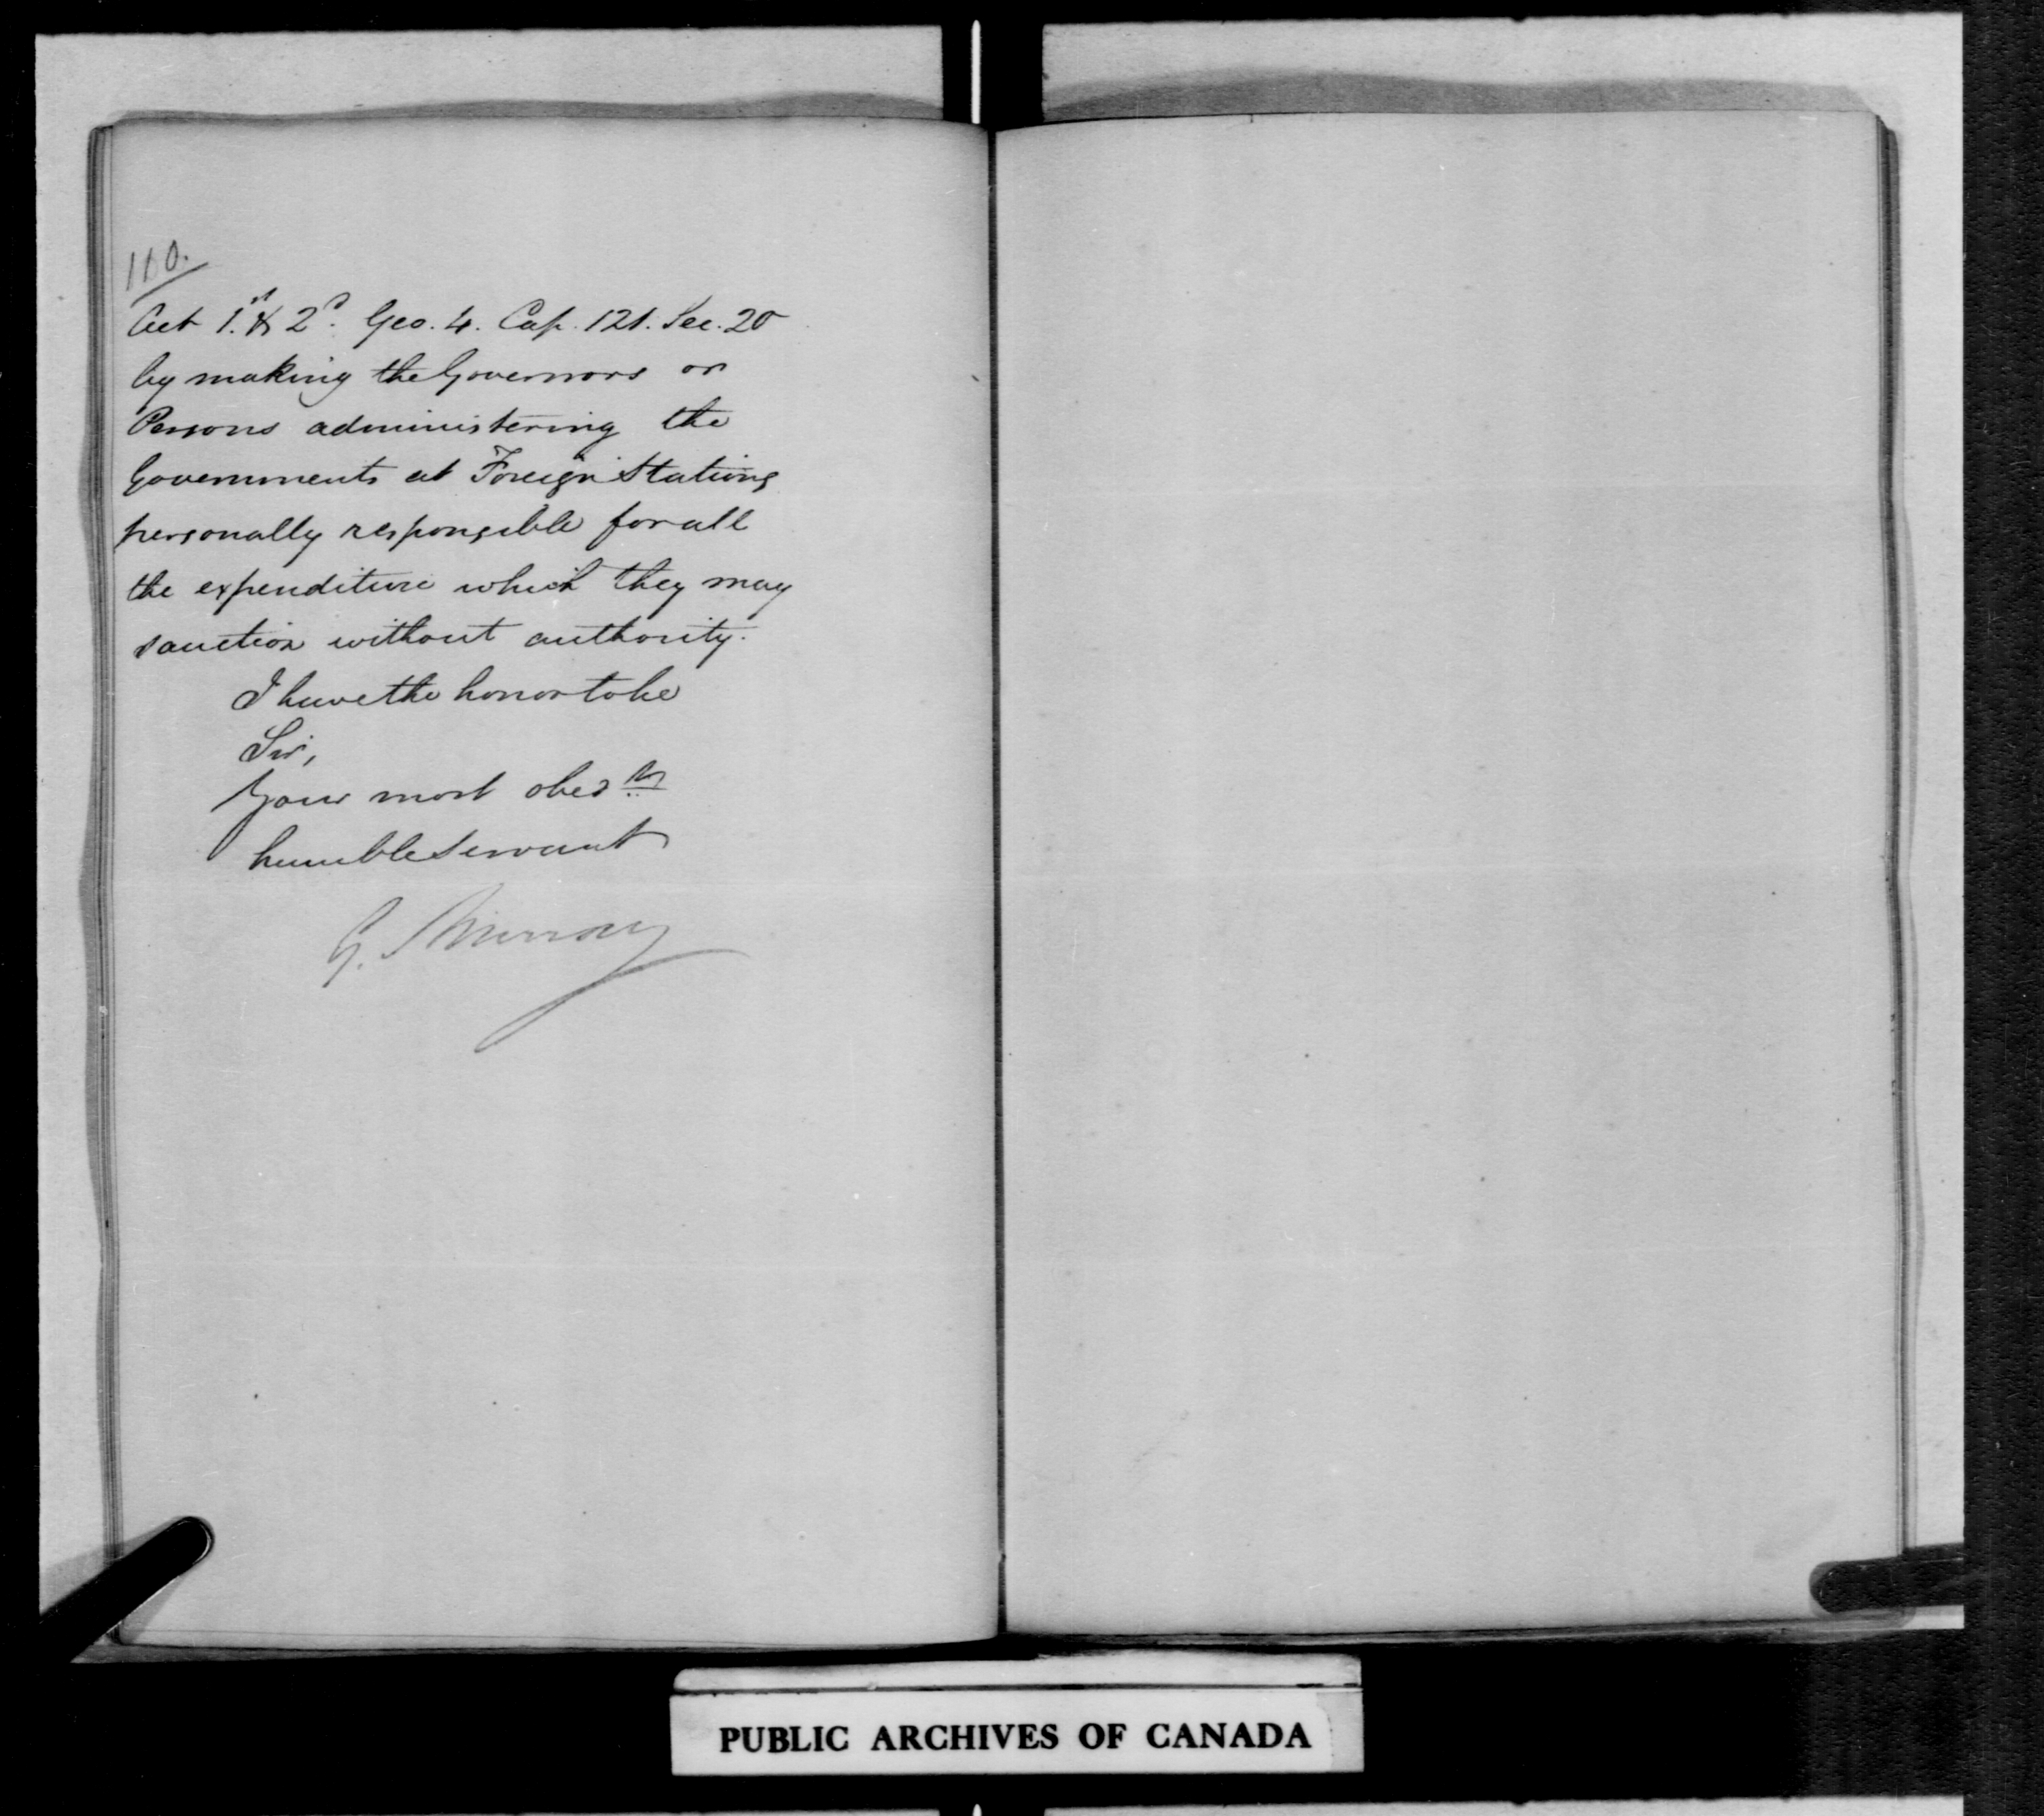 110.
Act 1.st & 2d. Geo. 4. Cap. 121. Sec. 20
by making the Governors or
Persons administering the
Governments at Foreign Stations
personally responsible for all
the expenditure which they may
sanction without authority.
I have the honor to be
Sir,
Your most obedt
humble Servant
G. Murray
PUBLIC ARCHIVES OF CANADA